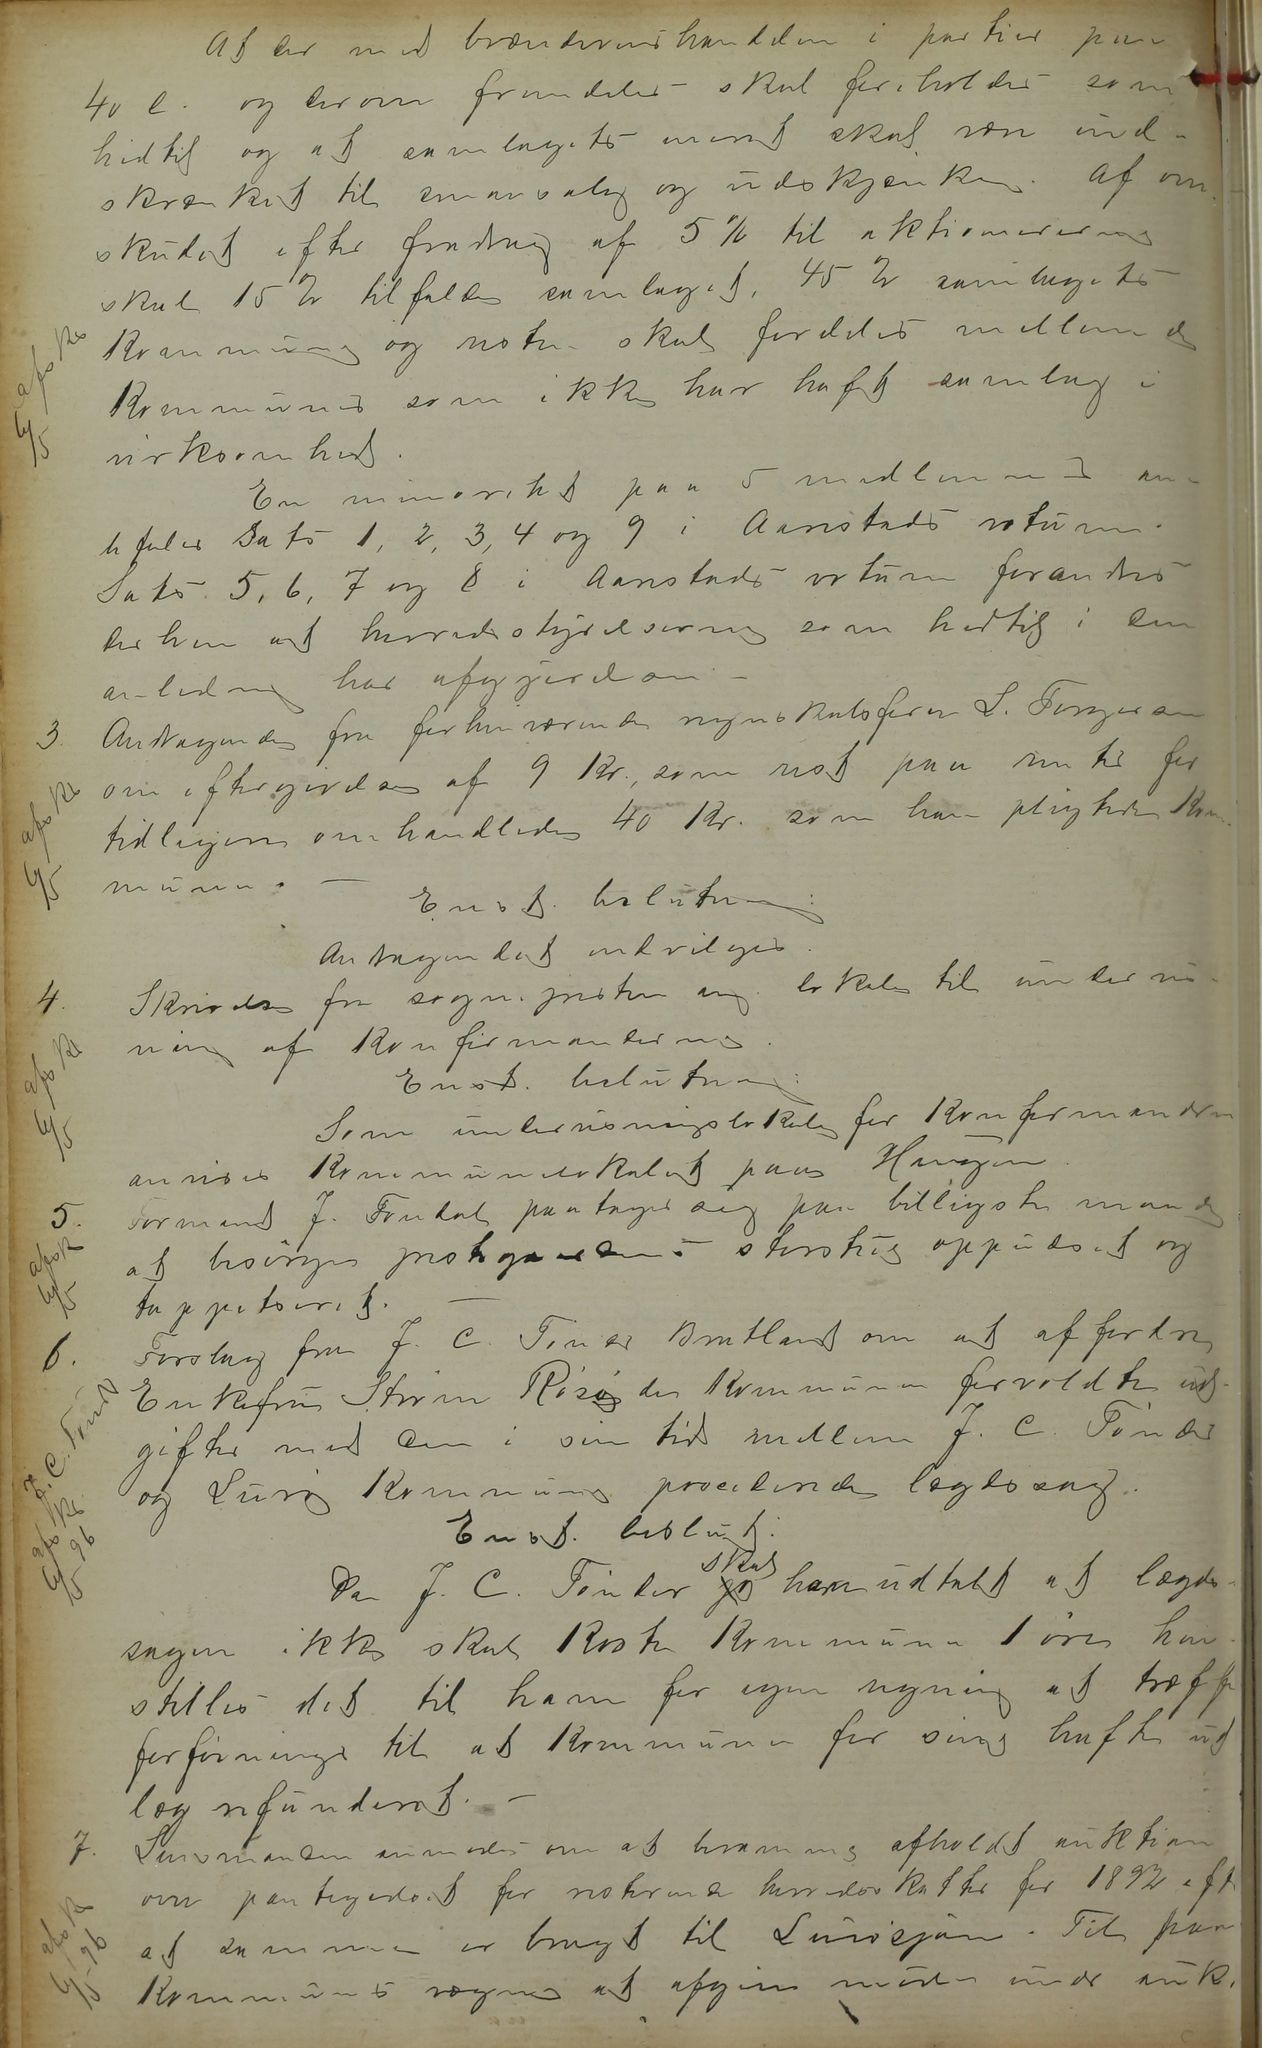 At der med brændevinshandelen i partier paa
40 l. og derover fremdeles skal forholdes som
hidtil og at samlagets monop skal være ind-
skrænket til smaasalg og udskjænkning. Af over
skudet efter fradrag af 5 % til aktionærerne
skal 15 % tilfalde samlaget, 45 % samlagets
Kommune og resten skal fordeles mellem de
Kommuner som ikke har haft samlag i
virksomhed.
En minoritet paa 5 medlemmer an-
befaler Sats 1, 2, 3, 4 og 9 i Aarstads votum.
Sats. 5, 6, 7 og 8 i Aarstads votum forandres
derhen at herredsstyrelserne som hidtil i den
anledning har afgjørelsen -
3. Andragende fra forhenværende regnskabsfører L. Torgersen
om eftergivelse af 9 Kr., som rest paa renter for
tidligere omhandlede 40 Kr. som han pligtede Kom-
munen. -
Enst. beslutning:
Andragendet indvilges.
4. Skrivelse fra sognepresten ang. lokale til undervis-
ning af Konfirmanderne.
Enst. beslutning:
Som undervisningslokale for Konfirmanderne
anvises Kommunelokalet paa Haugen.
5. Formand J. Fondal paatager sig paa billigste maade
at besørge prestegaardens storstue oppudset og
tappetseret. -
6. Forslag fra J. C. Tønder Bratland om at affordre
Enkefru Strøm Rosø de Kommunen forvoldte ud-
gifter med den i sin tid mellem J. C. Tønder
og Lurø Kommune procederede lægdssag.
Enst. beslut:
Da J. C. Tønder skal have udtalt at lægds-
sagen ikke skal koste Kommunen 1 øre hen-
stilles det til ham for egen regning at træffe
forføininger til at Kommunen for sine hafte ud
læg refunderet. -
7. Lensmanden anmodes om at beramme afholdt auktion
over pantegodset for resterende herredsskatter for 1892 efter
at sammen er bragt til Lurøsjøen. Til paa
Kommunens vegne at afgive møde under auk-
afs Ks
6/5
afs Ks
6/5
afs Ks
6/5
afs K
6/5
J. C. Tønder
afs Ks
6/5 96
afs K
6/5-96